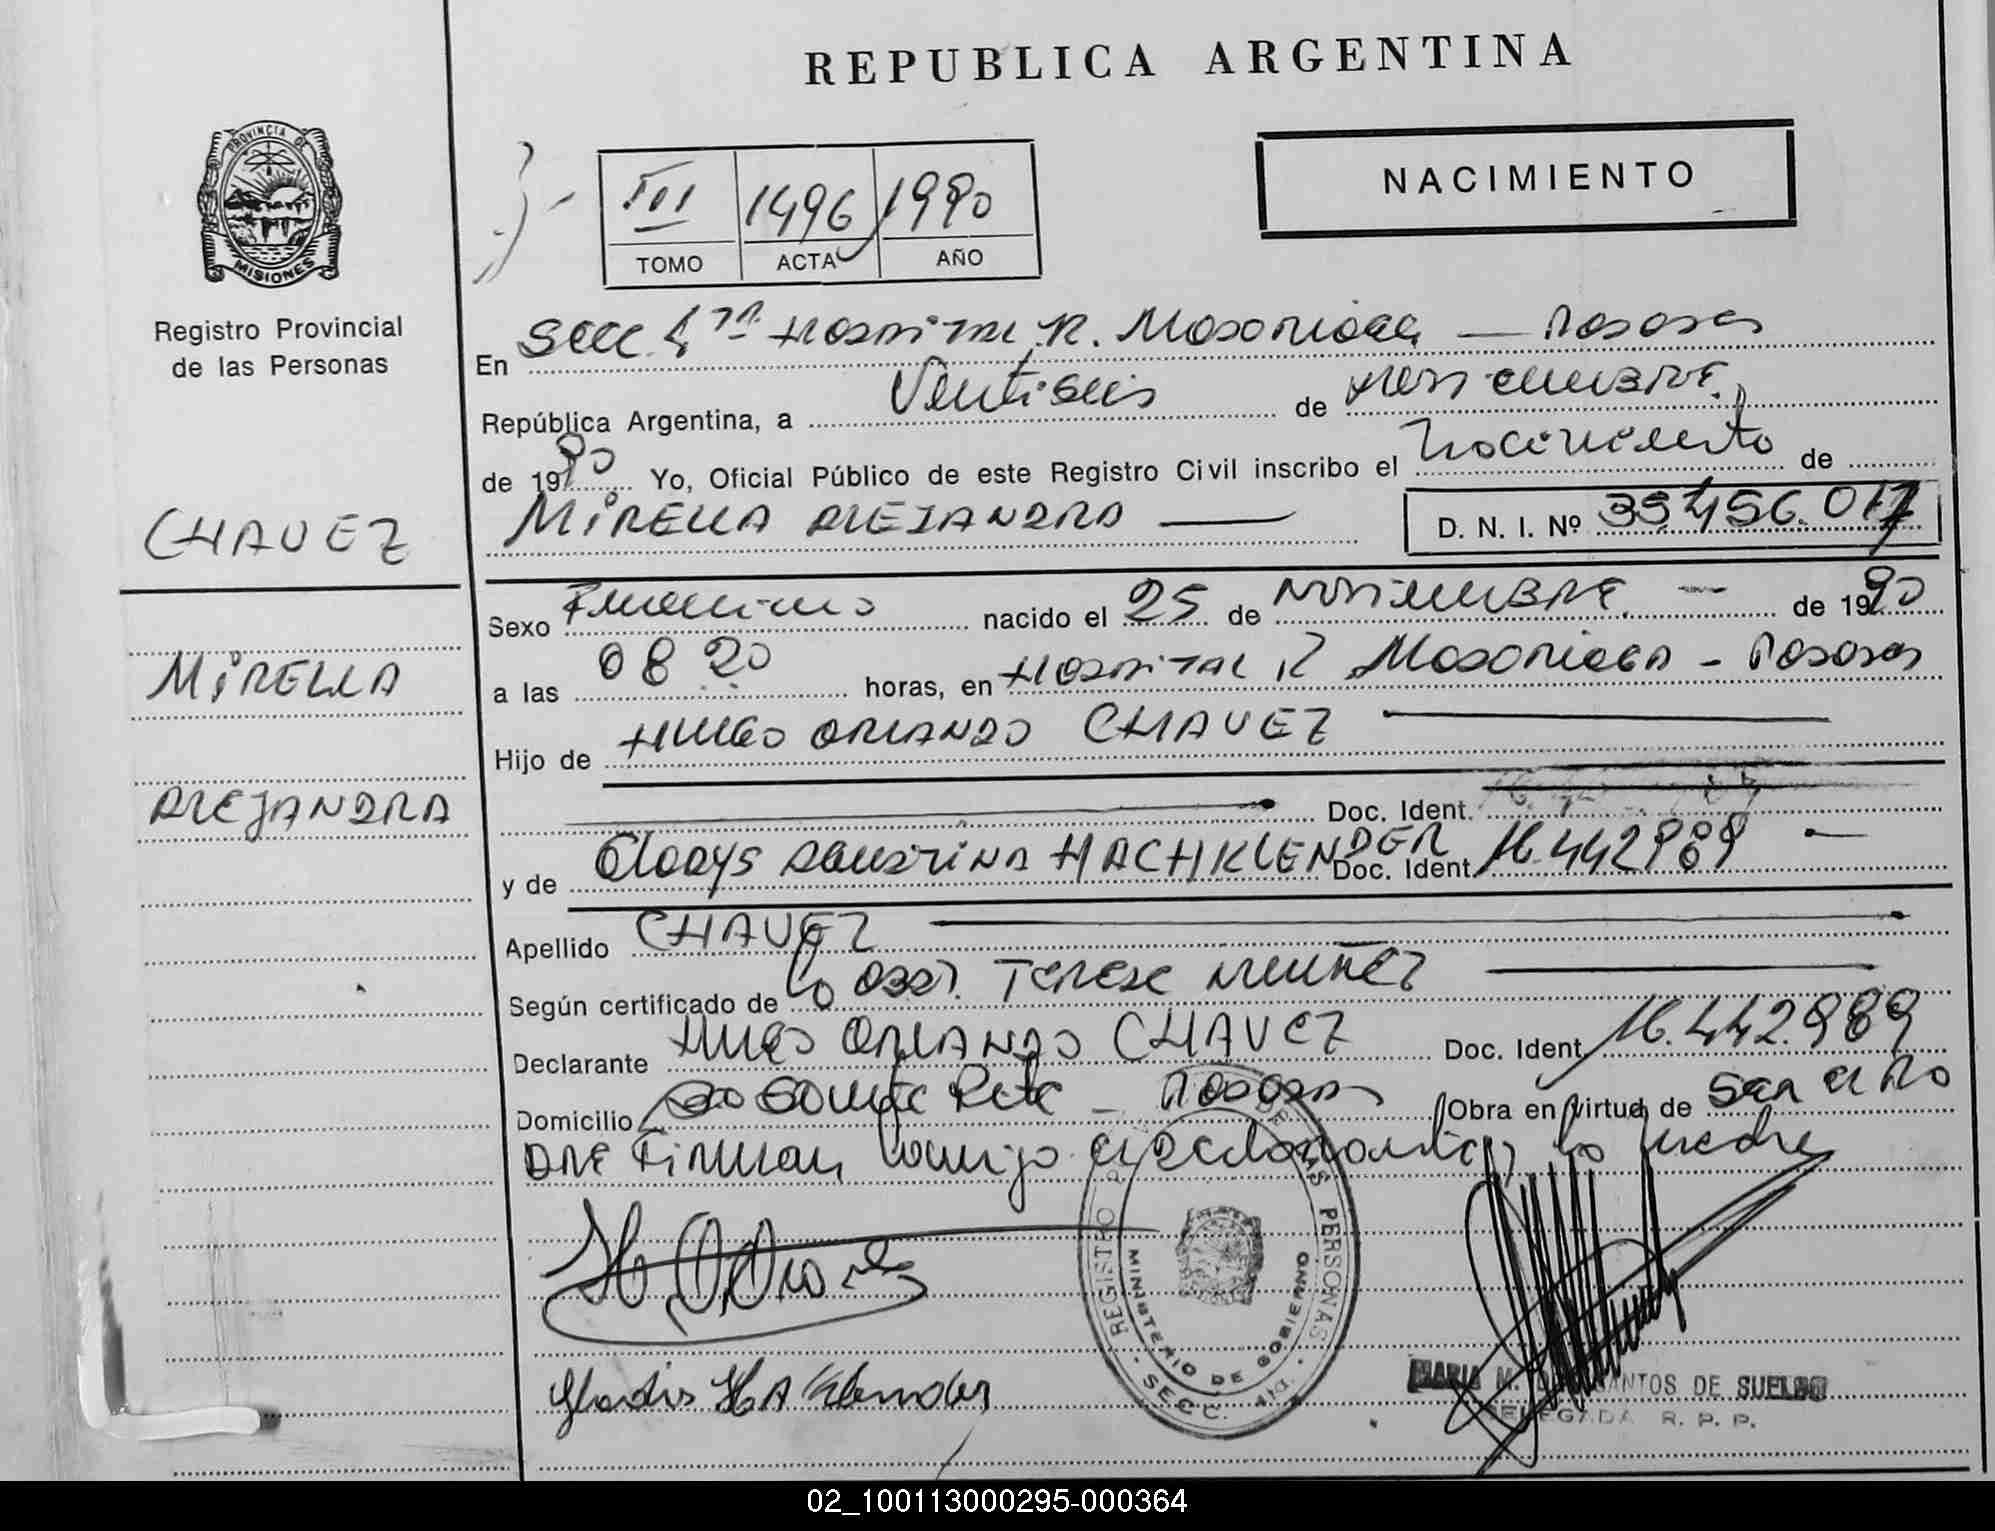 REPUBLICA ARGENTINA
PROVINCIA DE
MISIONES
Registro Provincial
de las Personas
III 1496 1990
TOMO ACTA AÑO
NACIMIENTO
En Secc. 4ta Hospital R. Madariaga — Posadas
República Argentina, a Ventiseis de NOVIEMBRE
de 1990 Yo, Oficial Público de este Registro Civil inscribo el Nacimiento de
CHAVEZ
MIRELLA ALEJANDRA
D. N. I. Nº 35.456.017
Sexo Femenino nacido el 25 de NOVIEMBRE — de 1990
MIRELLA
a las 08 20 horas, en HOSPITAL R MADARIAGA - Posadas
Hijo de HUGO ORLANDO CHAVEZ
ALEJANDRA
Doc. Ident.
y de Gladys AGUSTINA HACHKLENDER Doc. Ident. 16.442989 —
Apellido CHAVEZ
Según certificado de la Obst. TERESA NUÑEZ
Declarante HUGO ORLANDO CHAVEZ Doc. Ident. 16.442.989
Domicilio Santa Rita - Posadas Obra en virtud de SER EL PA
DRE Firman conmigo el declarante y la madre
Gladis HAKlender
REGISTRO DE LAS PERSONAS
MINISTERIO DE GOBIERNO
SECC. 4ta.
MARIA M. SANTOS DE SUELDO
DELEGADA R. P. P.
02_100113000295-000364